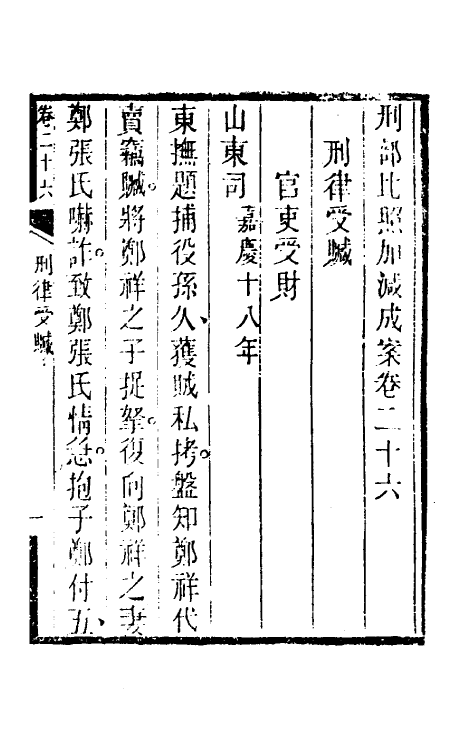 刑部比照加減成案卷二十六
刑律受贓
官吏受財
山東司 嘉慶十八年
東撫題捕役孫久、獲賊私拷。盤知鄭祥代
賣竊贓。將鄭祥之子捉拏。復向鄭祥之妻
鄭張氏嚇詐。致鄭張氏情急。抱子鄭付五、
卷二十六 刑律受贓 一